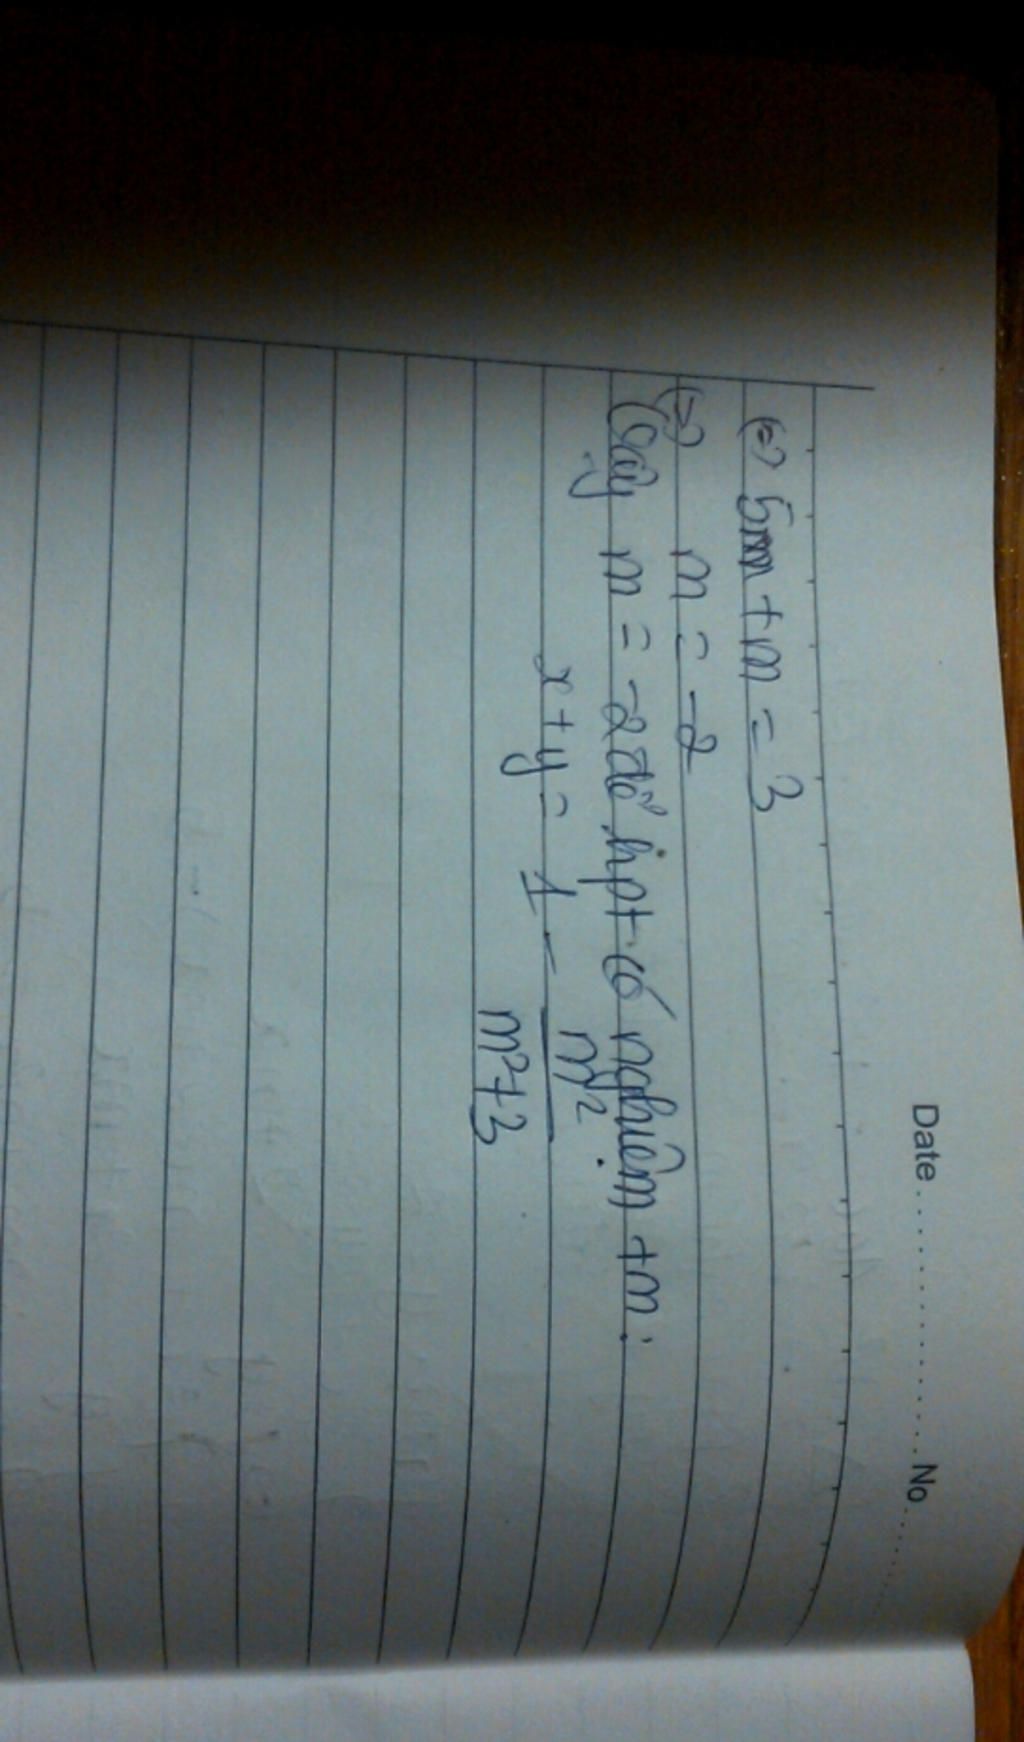 Date .................... No ............
(=) 5m + m = 3
(=) m = -2
Vậy m = -2 để hpt có nghiệm tm:
x + y = 1 - m²
m² + 3